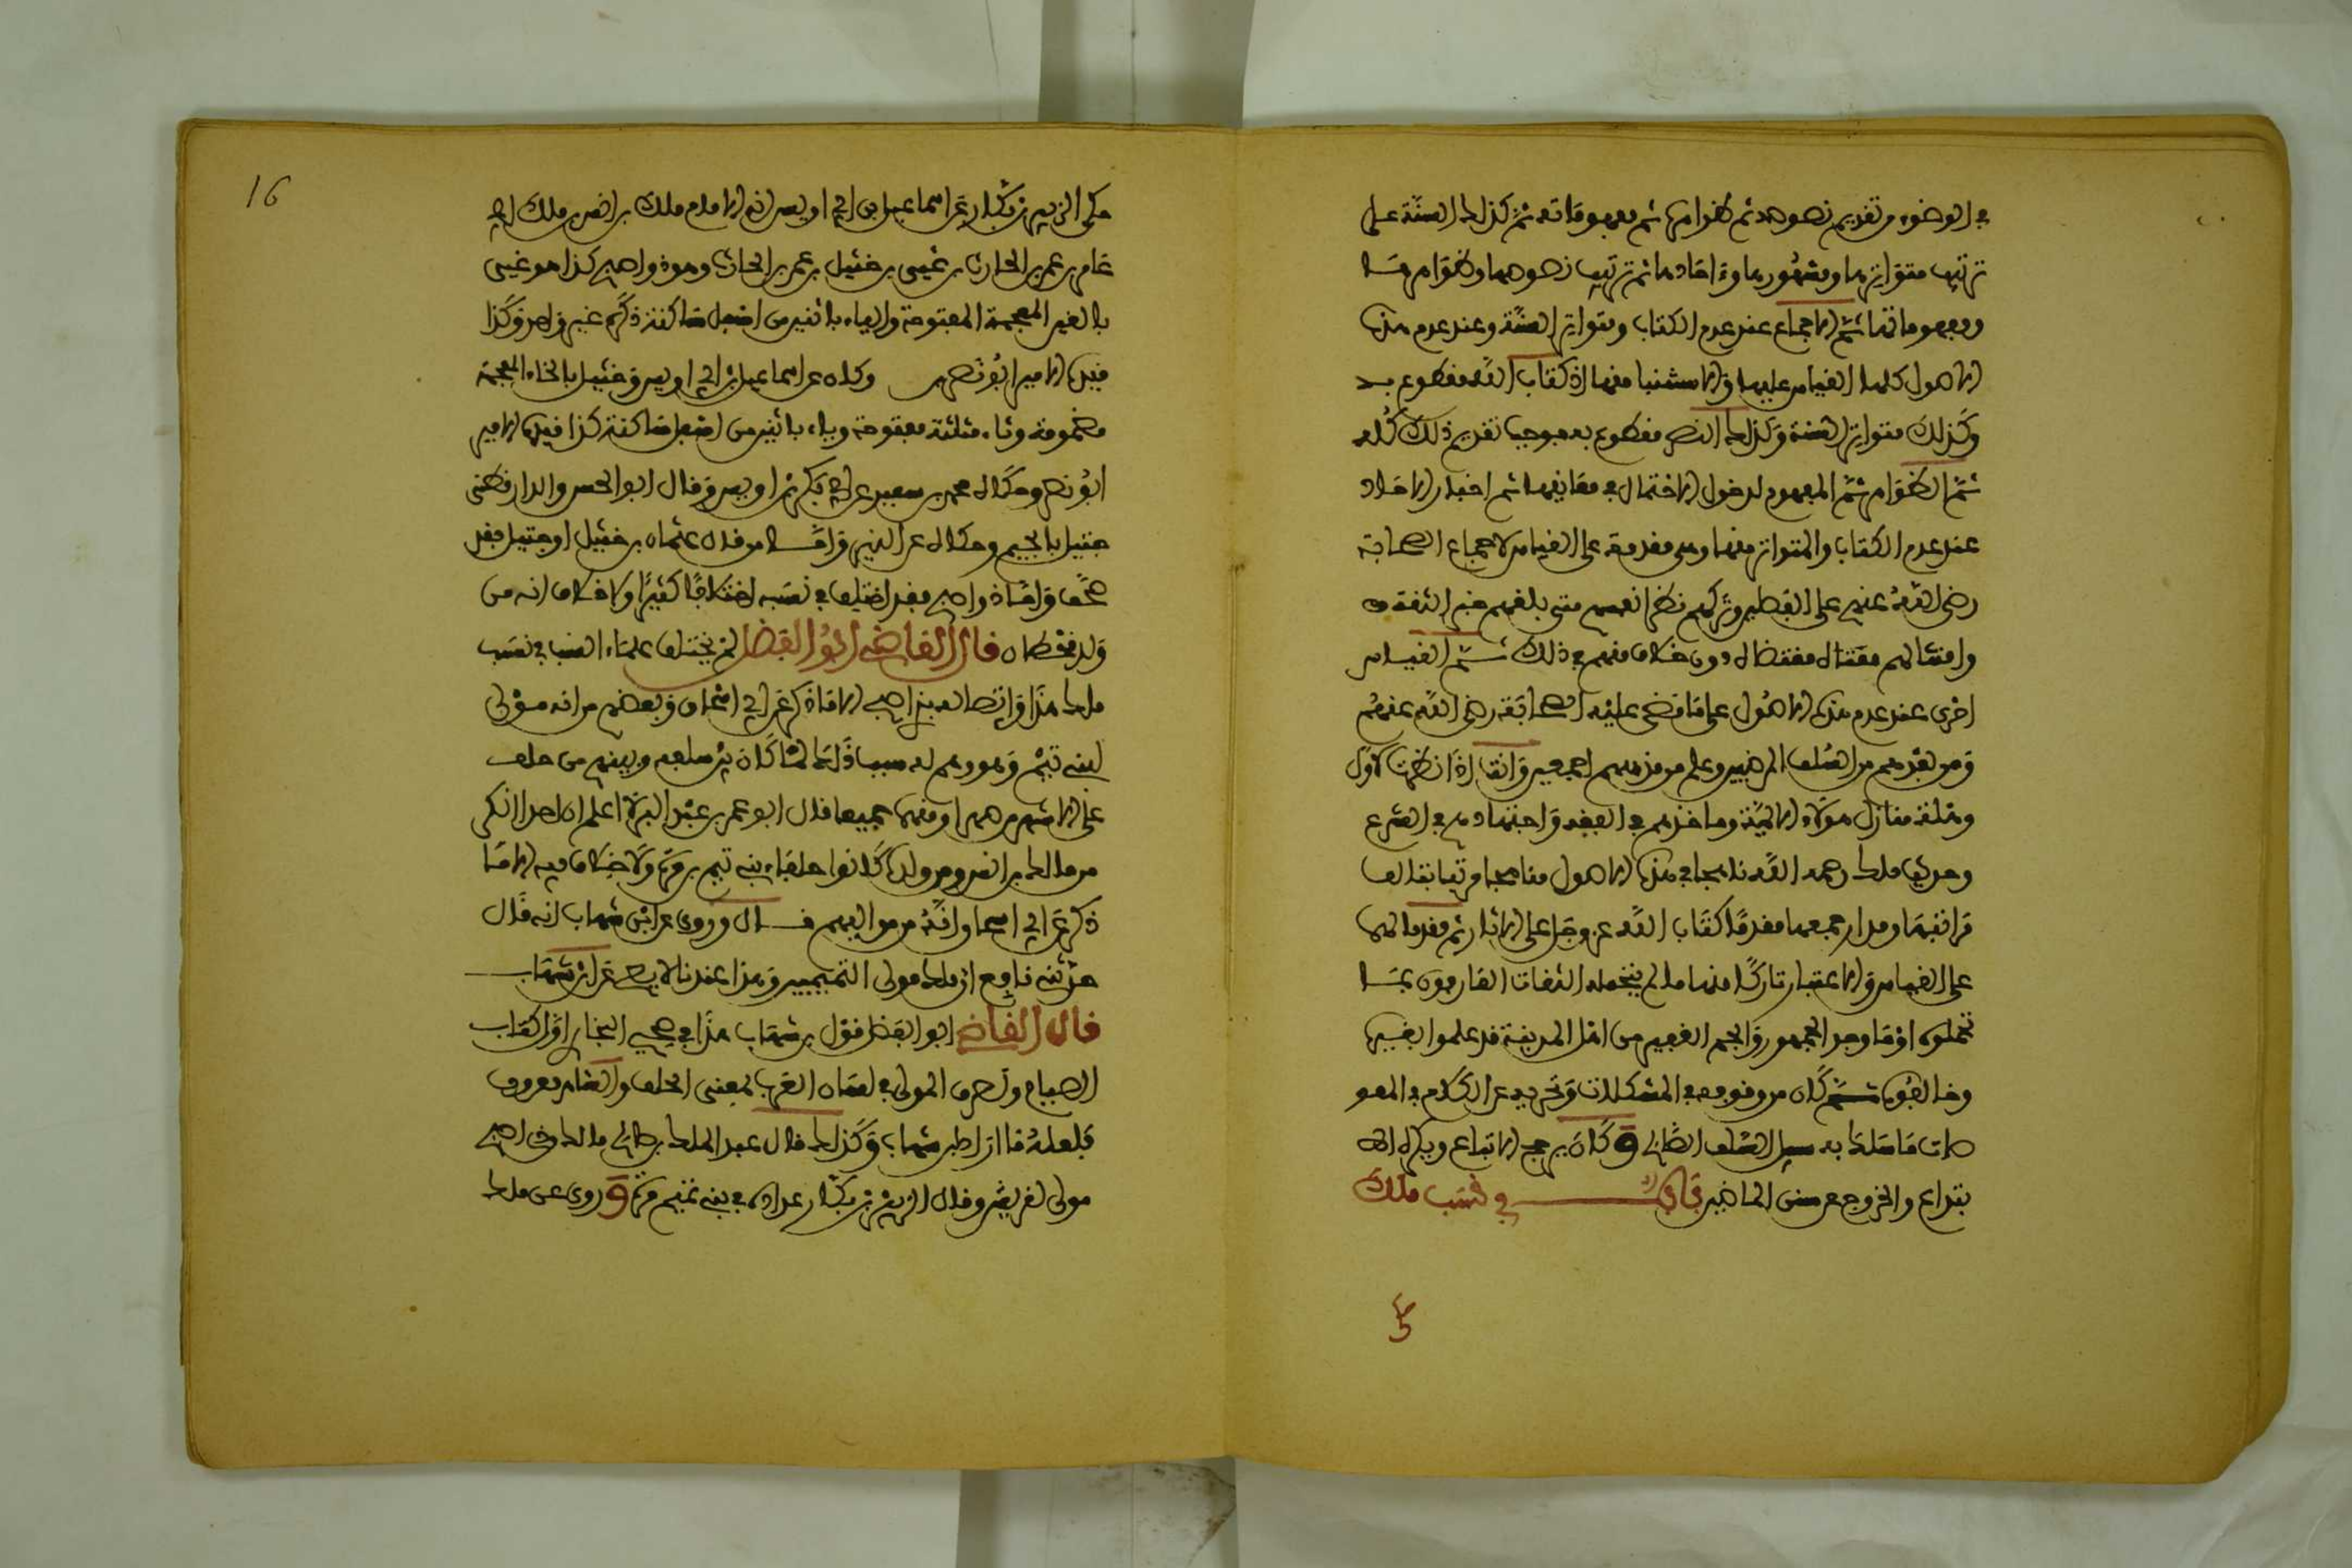 في الوضوء من تقديم نصوصه ثم ظواهرها ثم مفهوماته ثم كذلك السنة على
ترتيب متواترها ومشهورها وءاحادها ثم ترتيب نصوصها وظواهرها
ومفهوماتها ثم الاجماع عند عدم الكتاب ومتواتر السنة وعند عدم هذه
الاصول كلها القياس عليها والاستنباط منها اذ كتاب الله مقطوع به
وكذلك متواتر السنة وكذلك النص مقطوع به فوجب تقديم ذلك كله
ثم الظواهر ثم المفهوم لدخول الاحتمال في معانيها ثم اخبار الاحاد
عند عدم الكتاب والمتواتر منها وهي مقدمة على القياس لاجماع الصحابة
رضي الله عنهم على الفصلين وتركهم نظر انفسهم متى بلغهم خبر الثقة
وامتثالهم مقتضاه دون خلاف منهم في ذلك ثم القياس
اخرى عند عدم هذه الاصول على ما مضى عليه الصحابة رضي الله عنهم
ومن بعدهم من السلف المرضيين وعلم من مذهبهم اجمعين وانت اذا نظرت لاول
وهلة منازل هؤلاء الايمة وماخذهم في الفقه واجتهادهم في الشرع
وجدت ملكا رحمه الله ناهجا في هذه الاصول مناهجها مرتبا لها
مراتبها ومدارجها مقدما كتاب الله عز وجل على الاثار ثم مقدما لها
على القياس والاعتبار تاركا منها ما لم يتحمله الثقات العارفون بما
تحملوه او ما وجد الجمهور والجم الغفير من اهل المدينة قد عملوا بغيره
وخالفوه ثم كان من وقوفه في المشكلات وتحريه عن الكلام في المعو
صات ما سلك به سبيل السلف الصالح وكان يرجح الاتباع ويكره الا
بتداع والخروج عن سنن الماضين باب في نسب ملك
16
حكى الزبير بن بكار عن اسماعيل بن ابي اويس انه الامام ملك بن انس بن ملك بن ابي
عامر بن عمر بن الحارث بن غيمن بن خثيل بن عمر بن الحارث وهو ذو اصبح كذا هو غيمن
بالغين المعجمة المفتوحة والياء باثنين من اسفل ساكنة ذكره غير واحد وكذا
قيده الامير ابو نصر وحكاه عن اسماعيل بن ابي اويس وخثيل بالخاء المعجمة
مضمومة وثاء مثلثة مفتوحة وياء باثنين من اسفل ساكنة كذا قيده الامير
ابو نصر وحكاه محمد بن سعيد عن ابي بكر بن اويس وقال ابو الحسن الدارقطني
جثيل بالجيم وحكاه عن الزبير واما من قال عثمان بن خثيل او جثيل فقد
صحف واما ذو اصبح فقد اختلف في نسبه اختلافا كثيرا ولا خلاف انه من
ولد قحطان قال القاضي ابو الفضل لم يختلف علماء النسب في نسب
ملك هذا واتصاله بذي اصبح الا ما ذكر عن ابن اسحاق وبعضهم من انه مولى
لبني تيم وهو وهم له سبب وذلك لما كان بين سلفه وبينهم من حلف
على الاشهر من صهر او منهما جميعا قال ابو عمر بن عبد البر لا اعلم ان احدا انكر
من مالك بن انس ومن ولده كانوا حلفاء بني تيم بن مرة ولا خلاف فيه الا ما
ذكر عن ابن اسحاق انه من مواليهم قال وروي عن ابن شهاب انه قال
حدثني نافع بن ملك مولى التيميين وهذا عندنا لا يصح عن ابن شهاب
قال القاضي ابو الفضل قول بن شهاب هذا في صحيح البخاري اول كتاب
الصيام ولحرف المولى في لسان العرب بمعنى الحلف والتناصر معروف
فلعله ما اراد ابن شهاب وكذلك قال عبد الملك بن صالح مالك من ذي اصبح
مولى لقريش وقال الزبير بن بكار عداده في بني تيم بن مرة وروي عن ملك